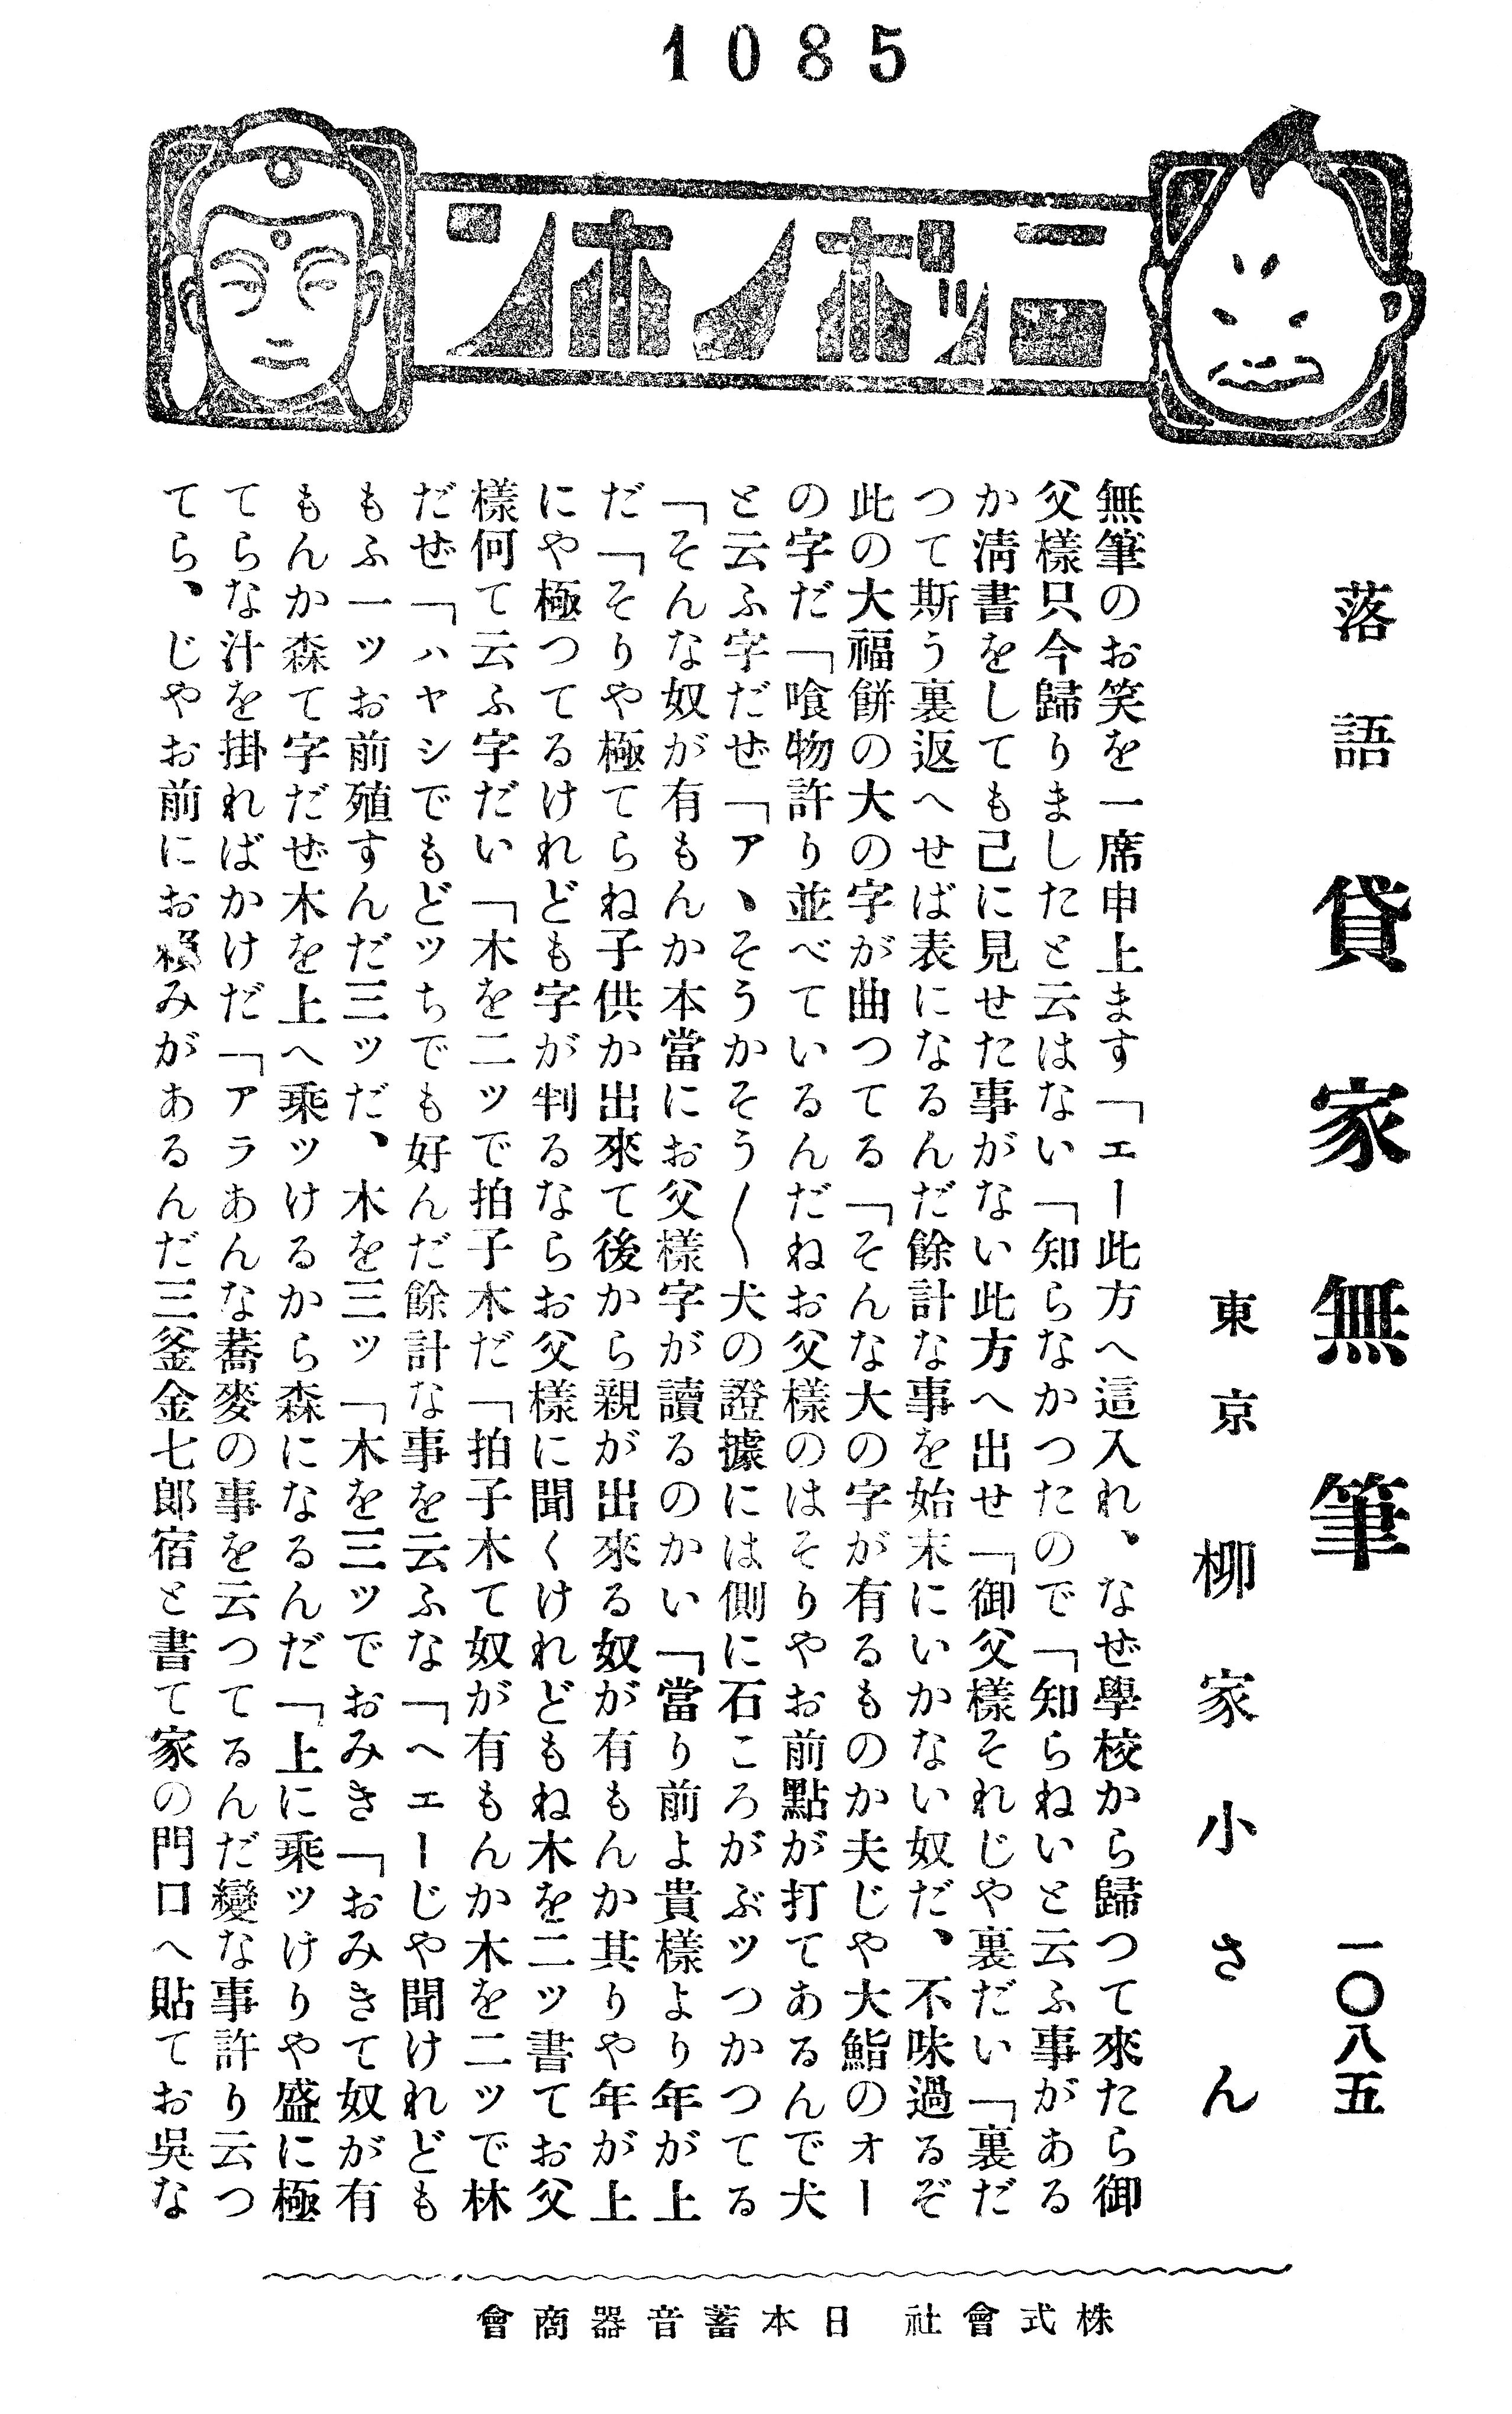 1085
ニッポノホン
落語 貸家無筆 一〇八五
東京 柳家小さん
無筆のお笑を一席申上ます「エー此方へ這入れ、なぜ學校から歸つて來たら御
父樣只今歸りましたと云はない「知らなかつたので「知らねいと云ふ事がある
か淸書をしても己に見せた事がない此方へ出せ「御父樣それじや裏だい「裏だ
つて斯う裏返へせば表になるんだ餘計な事を始末にいかない奴だ、不味過るぞ
此の大福餅の大の字が曲つてる「そんな大の字が有るものか夫じや大鮨のオー
の字だ「喰物許り並べているんだねお父樣のはそりやお前點が打てあるんで犬
と云ふ字だぜ「アヽそうかそう〱犬の證據には側に石ころがぶッつかつてる
「そんな奴が有もんか本當にお父樣字が讀るのかい「當り前よ貴樣より年が上
だ「そりや極てらね子供か出來て後から親が出來る奴が有もんか其りや年が上
にや極つてるけれども字が判るならお父樣に聞くけれどもね木を二ッ書てお父
樣何て云ふ字だい「木を二ッで拍子木だ「拍子木て奴が有もんか木を二ッで林
だぜ「ハヤシでもどッちでも好んだ餘計な事を云ふな「ヘエーじや聞けれども
もふ一ッお前殖すんだ三ッだ、木を三ッ「木を三ッでおみき「おみきて奴が有
もんか森て字だぜ木を上へ乘ッけるから森になるんだ「上に乘ッけりや盛に極
てらな汁を掛ればかけだ「アラあんな蕎麥の事を云つてるんだ變な事許り云つ
てら、じやお前にお賴みがあるんだ三釜金七郎宿と書て家の門口へ貼てお吳な
株式會社 日本蓄音器商會